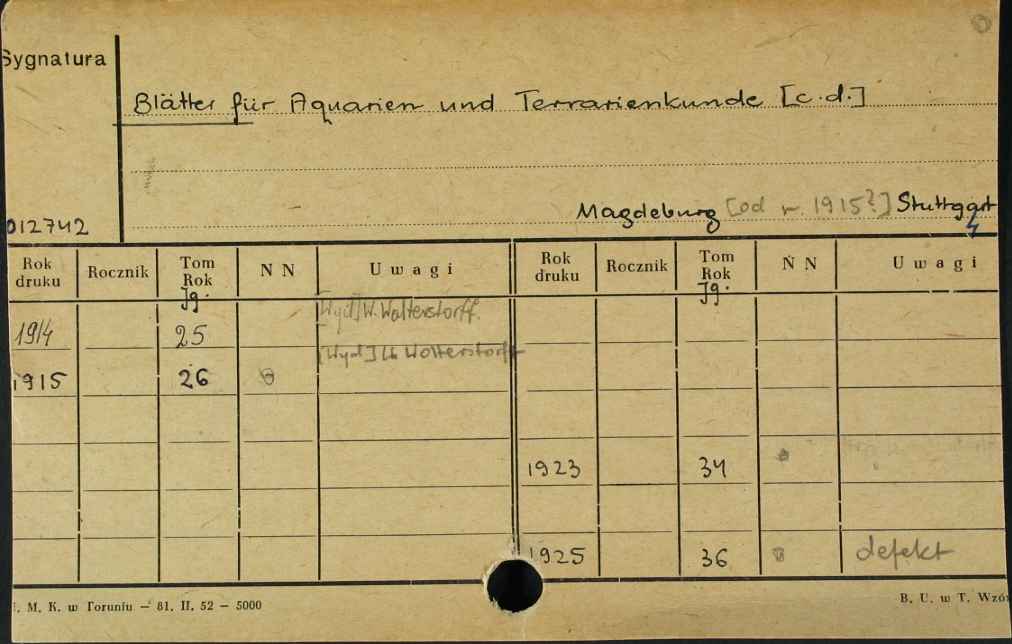 Sygnatura
Blätter für Aquarien und Terrarienkunde [c.d.]
Magdeburg [od r. 1915?] Stuttgart
012742
Rok druku Rocznik Tom Rok NN Uwagi Rok druku Rocznik Tom Rok NN Uwagi
Jg. Jg.
[Wyd] W. Wolterstorff.
1914 25
[Wyd] W. Wolterstorff
1915 26
1923 34
1925 36 defekt
M. K. w Toruniu — 81. II. 52 — 5000
B. U. w T. Wzór